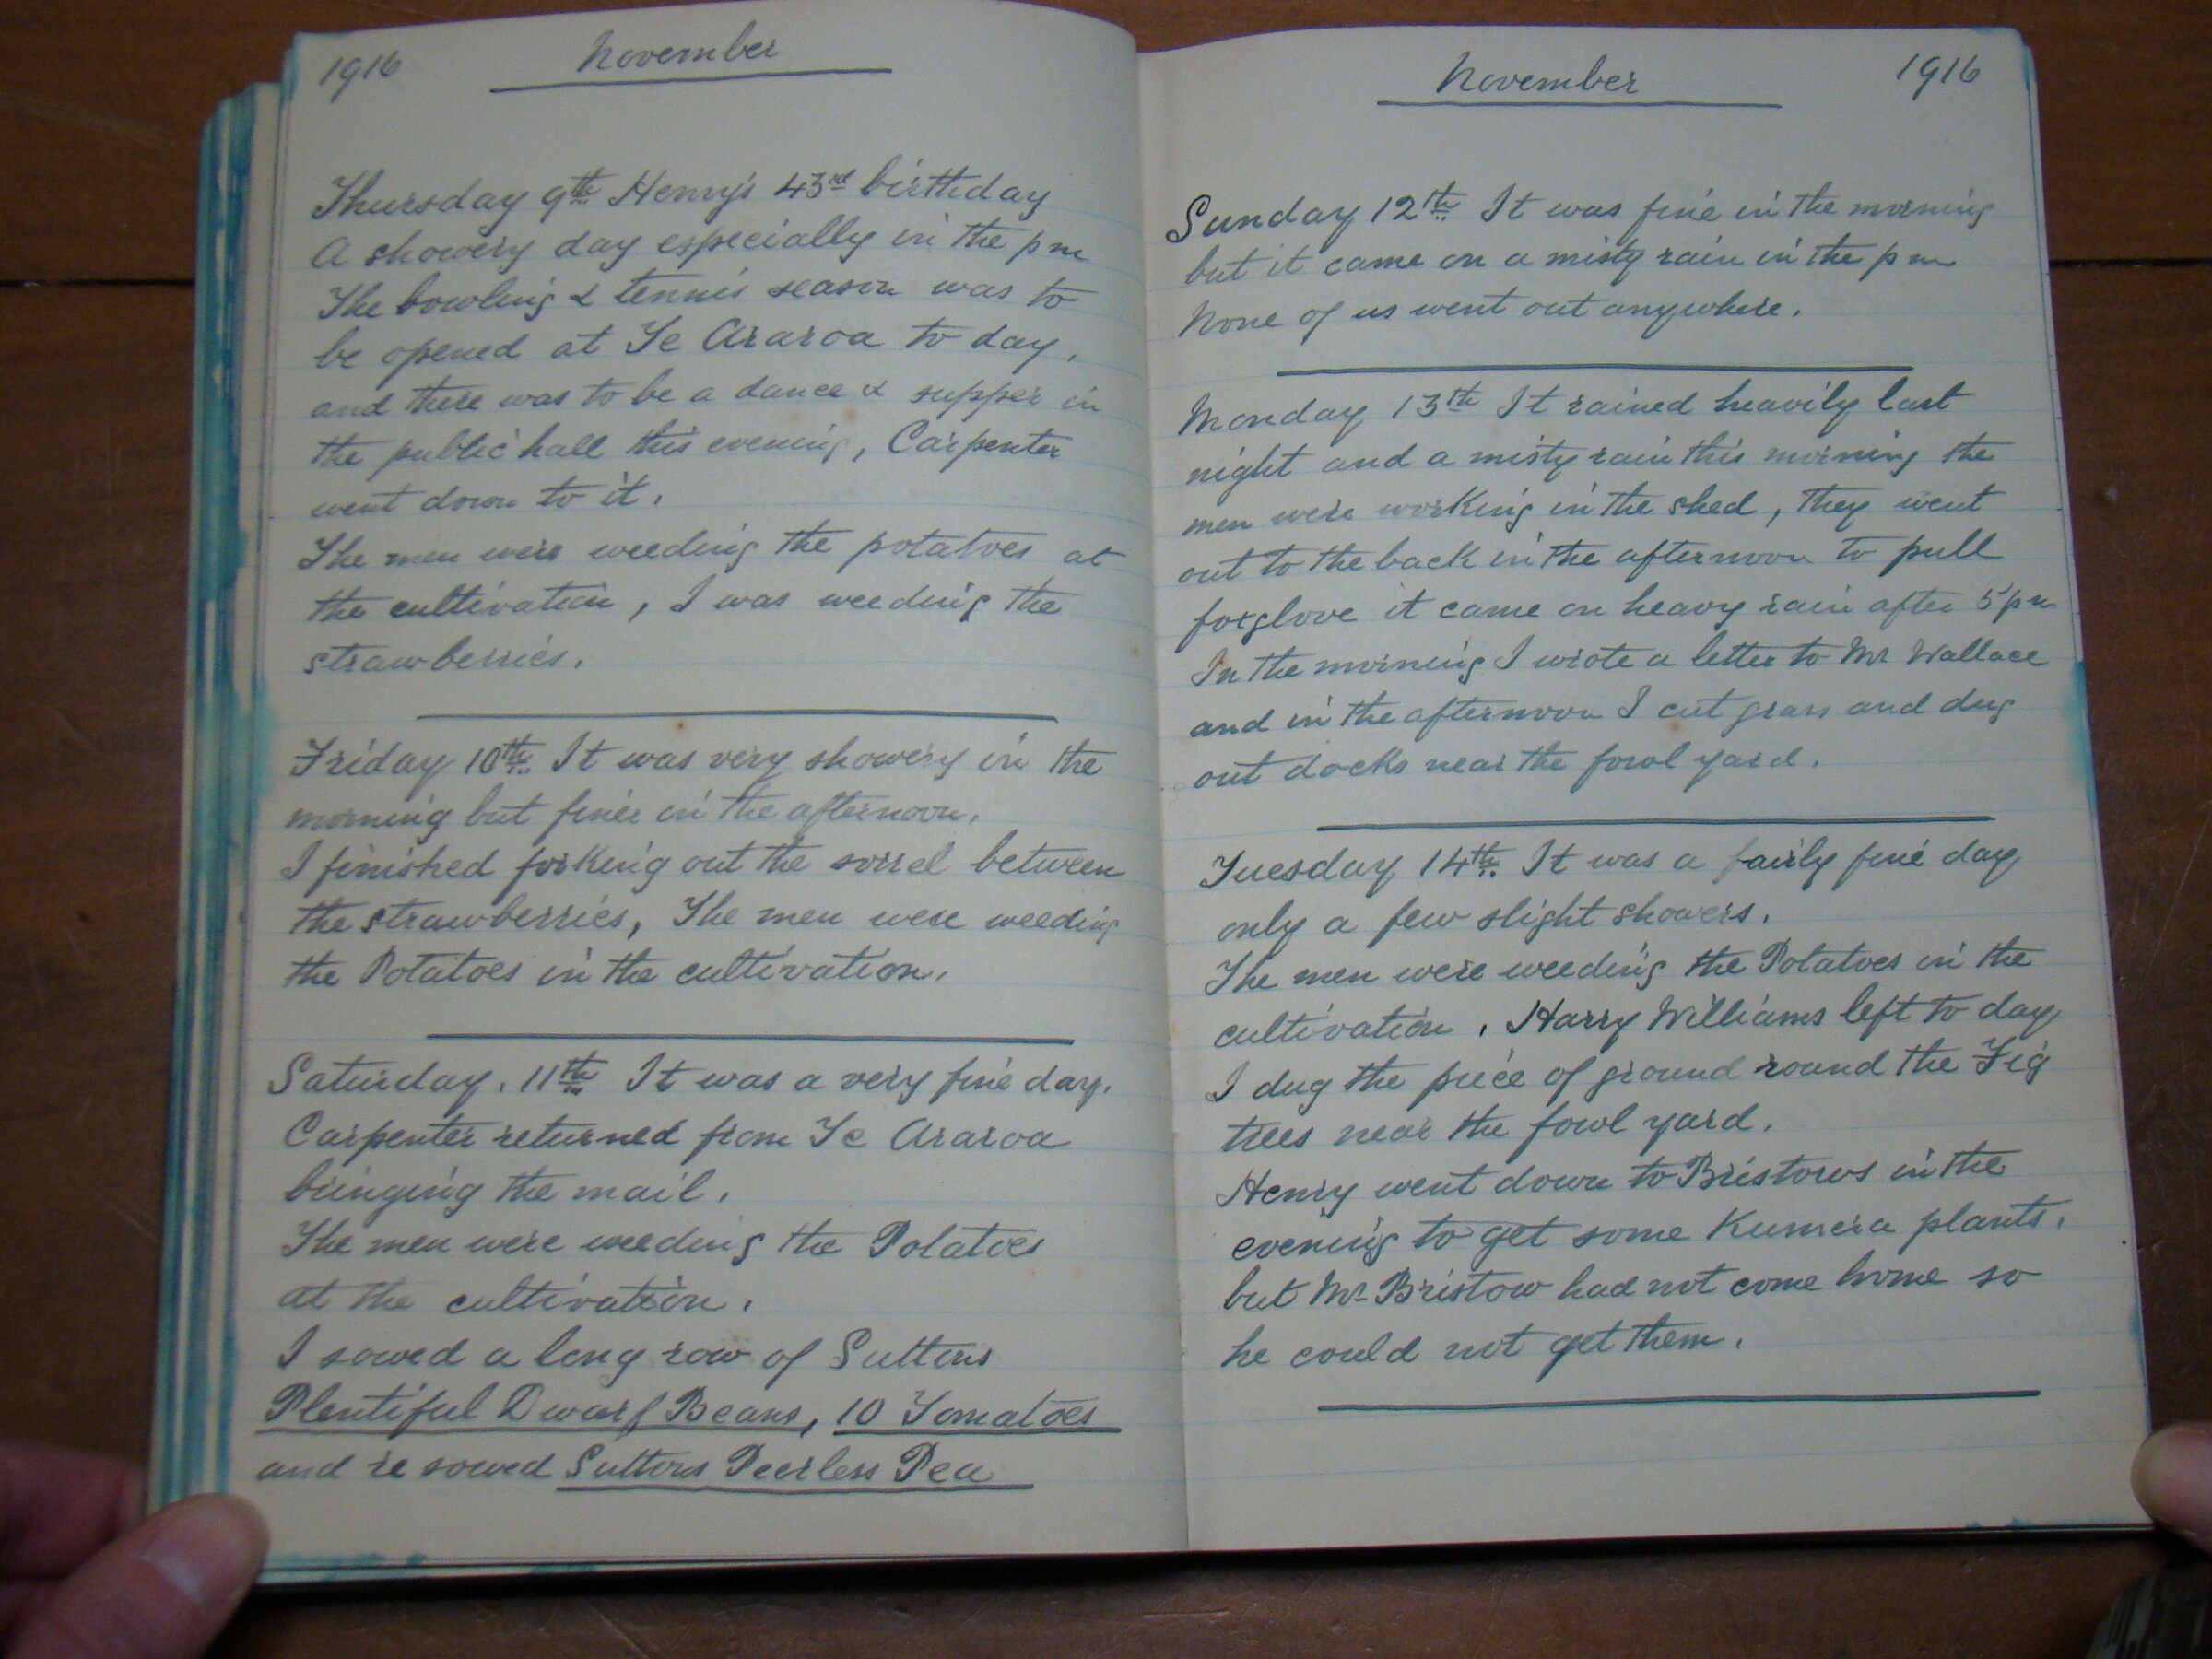 1916 November
Thursday 9th Henry's 43rd birthday
A showery day especially in the pm
The bowling & tennis season was to
be opened at Te Araroa to day,
and there was to be a dance & supper in
the public hall this evening, Carpenter
went down to it.
The men were weeding the potatoes at
the cultivation, I was weeding the
strawberries.
Friday 10th It was very showery in the
morning but finer in the afternoon.
I finished forking out the sorrel between
the strawberries, The men were weeding
the Potatoes in the cultivation.
Saturday. 11th It was a very fine day.
Carpenter returned from Te Araroa
bringing the mail.
The men were weeding the Potatoes
at the cultivation.
I sowed a long row of Suttons
Plentiful Dwarf Beans, 10 Tomatoes
and re sowed Suttons Peerless Pea
November 1916
Sunday 12th It was fine in the morning
but it came on a misty rain in the pm
None of us went out anywhere.
Monday 13th It rained heavily last
night and a misty rain this morning the
men were working in the shed, they went
out to the back in the afternoon to pull
foxglove it came on heavy rain after 5 pm
In the morning I wrote a letter to Mr Wallace
and in the afternoon I cut grass and dug
out docks near the fowl yard.
Tuesday 14th It was a fairly fine day
only a few slight showers.
The men were weeding the Potatoes in the
cultivation. Harry Williams left to day
I dug the piece of ground round the Fig
trees near the fowl yard.
Henry went down to Bristows in the
evening to get some Kumera plants.
but Mr Bristow had not come home so
he could not get them.